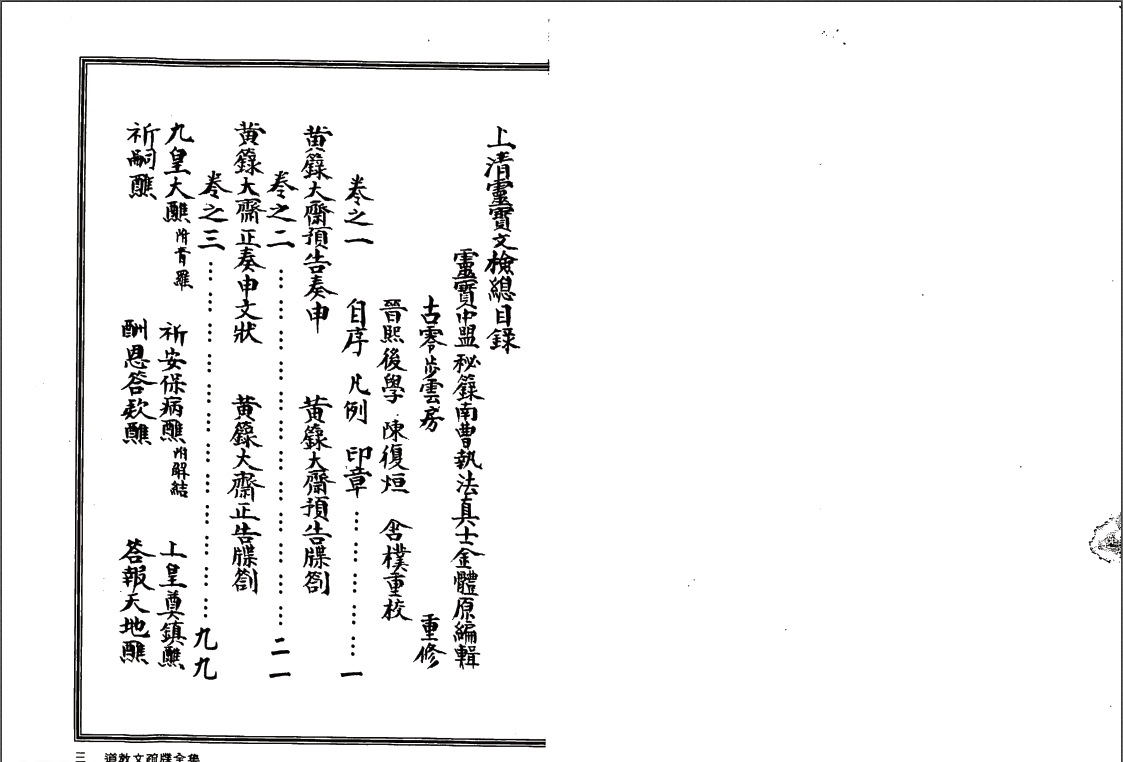 上清靈寶文檢總目錄
靈寶中盟秘籙南曹執法真士金體原編輯
古零步雲房 重修
晉熙後學 陳復烜 含樸重校
卷之一 自序 凡例 印章………………一
黃籙大齋預告奏申 黃籙大齋預告牒劄
卷之二………………二一
黃籙大齋正奏申文狀 黃籙大齋正告牒劄
卷之三………………九九
九皇大醮附青羅 祈安保病醮附解結 上皇奠鎮醮
祈嗣醮 酬恩答款醮 答報天地醮
三 道教文疏牒全集